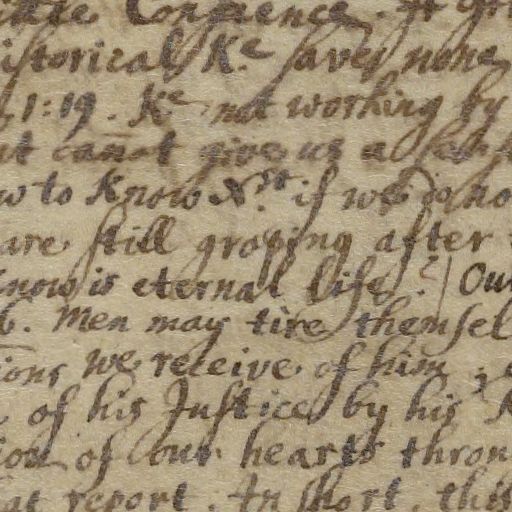 Conscience. It
istorical K.e saves none
1:19. K.e not working by
cannot give us a
w to Know X.st if we igno
are still groping after
know is eternal life. Our
6. Men may tire themsel
ions we receive of him,
of his Justice by his
ion of our hearts throu
at report. In short, this